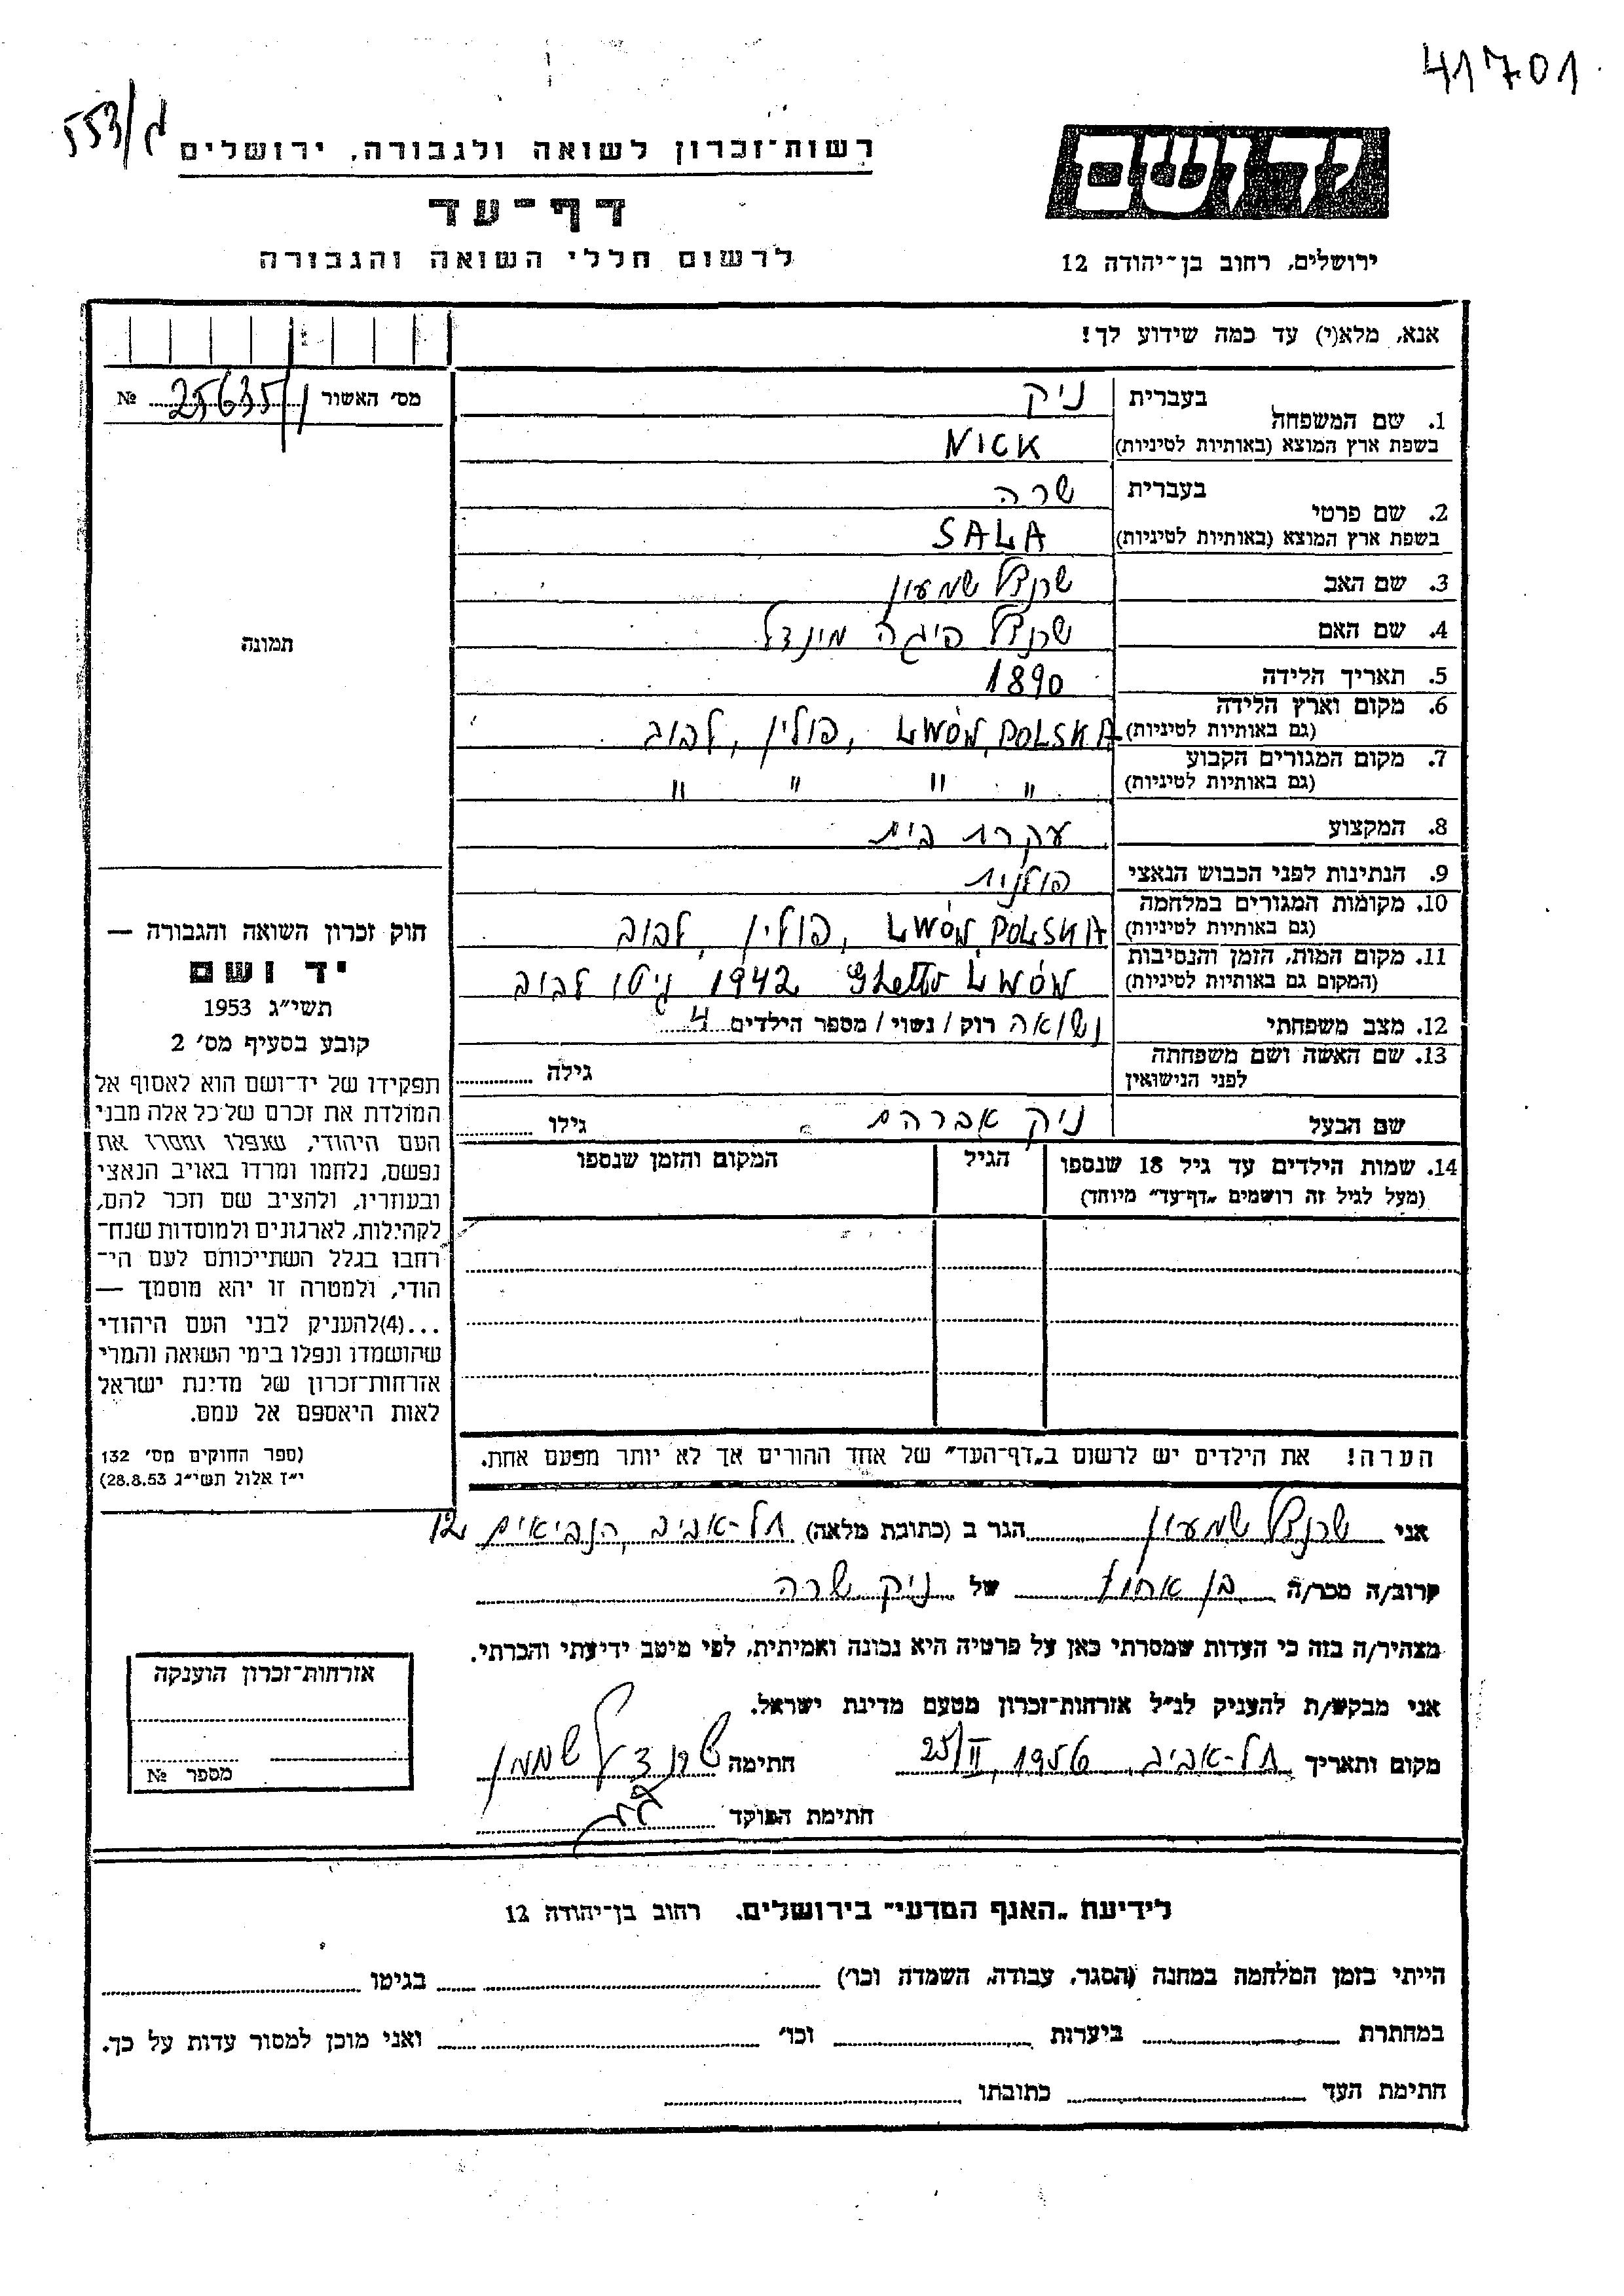 41701
553/ג
רשות־זכרון לשואה ולגבורה, ירושלים
יד ושם
דף־עד
לרשום חללי השואה והגבורה
ירושלים, רחוב בן־יהודה 12
אנא, מלא(י) עד כמה שידוע לך!
מס׳ האשור 25635/1 №
1. שם המשפחה בעברית ניק
בשפת ארץ המוצא (באותיות לטיניות) NICK
2. שם פרטי בעברית שרה
בשפת ארץ המוצא (באותיות לטיניות) SALA
3. שם האב שרנצל שמעון
4. שם האם שרנצל פיגה מינדל
5. תאריך הלידה 1890
6. מקום וארץ הלידה
(גם באותיות לטיניות) LWÓW, POLSKA, פולין, לבוב
7. מקום המגורים הקבוע
(גם באותיות לטיניות) " " " "
8. המקצוע עקרת בית
9. הנתינות לפני הכבוש הנאצי פולנית
10. מקומות המגורים במלחמה
(גם באותיות לטיניות) LWÓW, POLSKA, פולין, לבוב
11. מקום המות, הזמן והנסיבות
(המקום גם באותיות לטיניות) Ghetto LWÓW 1942 גיטו לבוב
12. מצב משפחתי נשואה רוק/ נשוי/ מספר הילדים 4
13. שם האשה ושם משפחתה
לפני הנישואין גילה
שם הבעל ניק אברהם גילו
14. שמות הילדים עד גיל 18 שנספו הגיל המקום והזמן שנספו
(מעל לגיל זה רושמים „דף־עד" מיוחד)
הערה! את הילדים יש לרשום ב„דף־העד" של אחד ההורים אך לא יותר מפעם אחת.
תמונה
חוק זכרון השואה והגבורה —
יד ושם
תשי״ג 1953
קובע בסעיף מס׳ 2
תפקידו של יד־ושם הוא לאסוף אל
המולדת את זכרם של כל אלה מבני
העם היהודי, שנפלו ומסרו את
נפשם, נלחמו ומרדו באויב הנאצי
ובעוזריו, ולהציב שם וזכר להם,
לקהילות, לארגונים ולמוסדות שנח־
רחבו בגלל השתייכותם לעם הי־
הודי, ולמטרה זו יהא מוסמך —
...(4)להעניק לבני העם היהודי
שהושמדו ונפלו בימי השואה והמרי
אזרחות־זכרון של מדינת ישראל
לאות היאספם אל עמם.
(ספר החוקים מס׳ 132
י״ז אלול תשי״ג 28.8.53)
אני שרנצל שמעון הגר ב (כתובת מלאה) תל-אביב, הנביאים 12
קרוב/ה מכר/ה בן אחות של ניק שרה
מצהיר/ה בזה כי העדות שמסרתי כאן על פרטיה היא נכונה ואמיתית, לפי מיטב ידיעתי והכרתי.
אני מבקש/ת להעניק לנ״ל אזרחות־זכרון מטעם מדינת ישראל.
מקום ותאריך תל-אביב, 25/II 1956 חתימה שרנצל שמעון
חתימת הפוקד
אזרחות־זכרון הוענקה
מספר №
לידיעת „האגף המדעי" בירושלים, רחוב בן־יהודה 12
הייתי בזמן המלחמה במחנה (הסגר, עבודה, השמדה וכו׳) בגיטו
במחתרת ביערות וכו׳ ואני מוכן למסור עדות על כך.
חתימת העד כתובתו